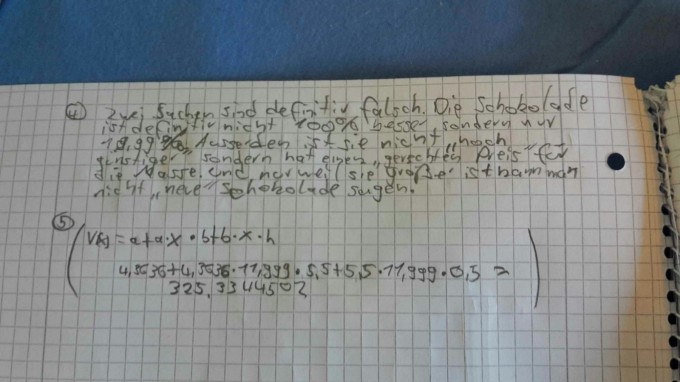 ④ Zwei Sachen sind definitiv falsch. Die Schokolade
ist definitiv nicht 100% besser sondern nur
Ausserden ist sie nicht „noch
günstiger" sondern hat einen „gerechten Preis" für
die Masse. und nur weil sie größer ist kann man
nicht „neue" Schokolade sagen.
⑤
V(x) = a+a·x · b+b·x·h
11,999 · 5,5+5,5·11,999·0,5 =
325,3344502